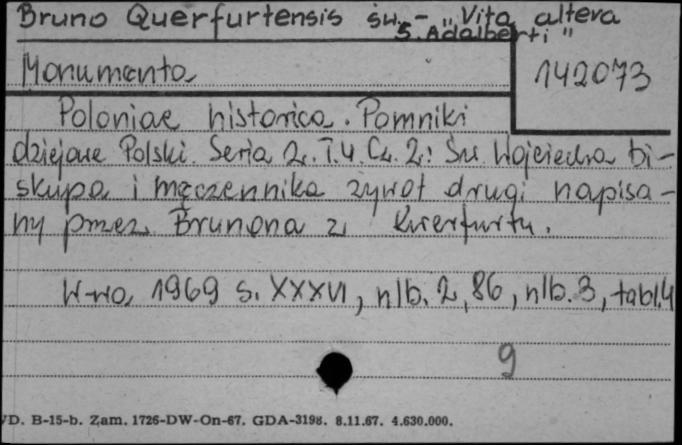 Bruno Querfurtensis św. - „Vita altera
S. Adalberti"
Monumenta
142073
Poloniae historica. Pomniki
dziejowe Polski. Seria 2. T.4. Cz. 2: Św. Wojciecha bi-
skupa i męczennika żywot drugi napisa-
ny przez Brunona z Kwerfurtu.
W-wa 1969 s. XXXVI, nlb. 2, 86, nlb. 3, tabl. 4
9
D. B-15-b. Zam. 1726-DW-On-67. GDA-3198. 8.11.67. 4.630.000.